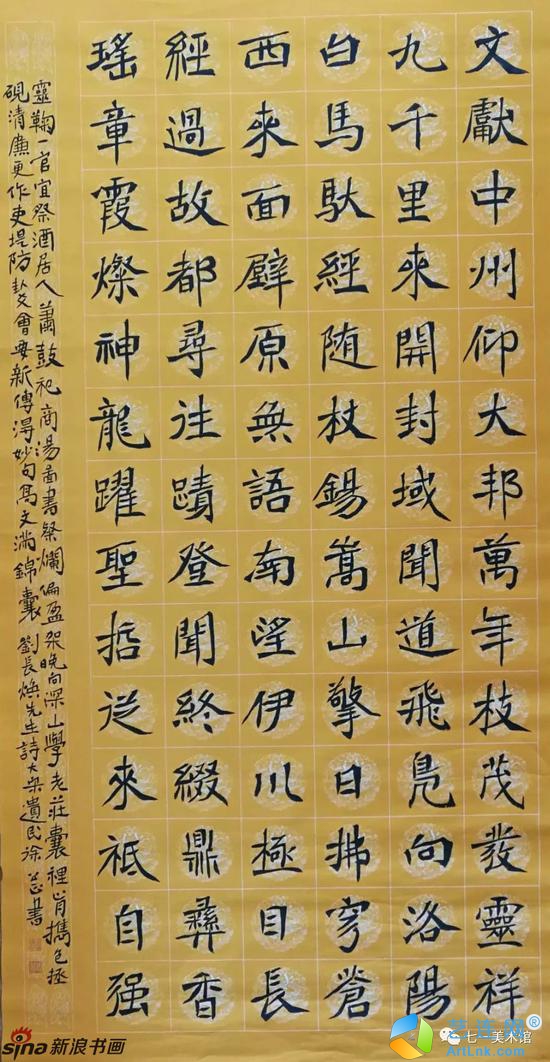 文獻中州仰大邦萬年枝茂發靈祥
九千里來開封域聞道飛鳧向洛陽
白馬馱經随杖錫嵩山擎日拂穹蒼
西來面壁原無語南望伊川極目長
經過故都尋往蹟登聞終綴鼎彝香
瑤章霞燦神龍躍聖哲從來祗自强
靈鞠一官宜祭酒居人蕭鼓祀商湯啚書粲爛偏盈架晚向深山學老莊囊裡肯攜包拯
硯清廉更作吏堤防 會要新傳得妙句高文滿錦囊 劉長煥先生詩大梁遺民徐 書
sina新浪书画
七一美术馆
艺连网®
ArtLnk.com